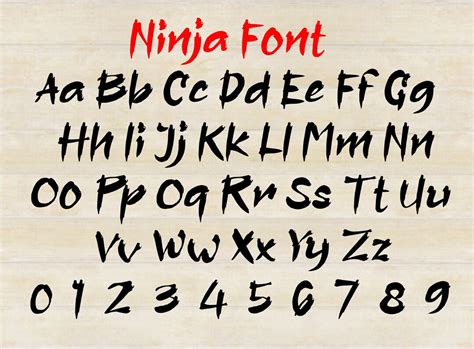 Ninja Font
Aa Bb Cc Dd Ee Ff Gg
Hh Ii Jj Kk Ll Mm Nn
Oo Pp Qq Rr Ss Tt Uu
Vv Ww Xx Yy Zz
0 1 2 3 4 5 6 7 8 9